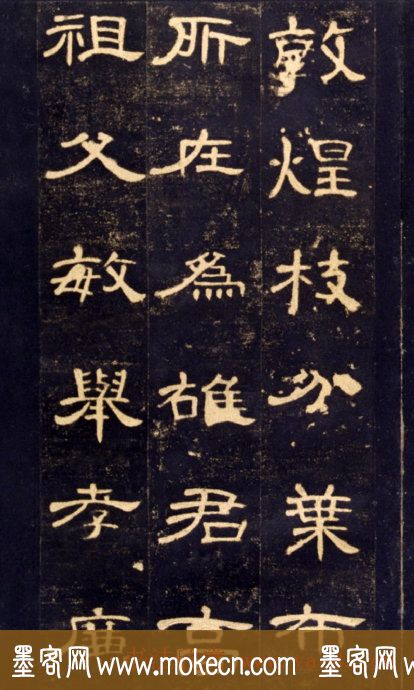 敦煌枝分葉布
所在為雄君高
祖父敏舉孝廉
墨客网 www.mokecn.com 墨客网